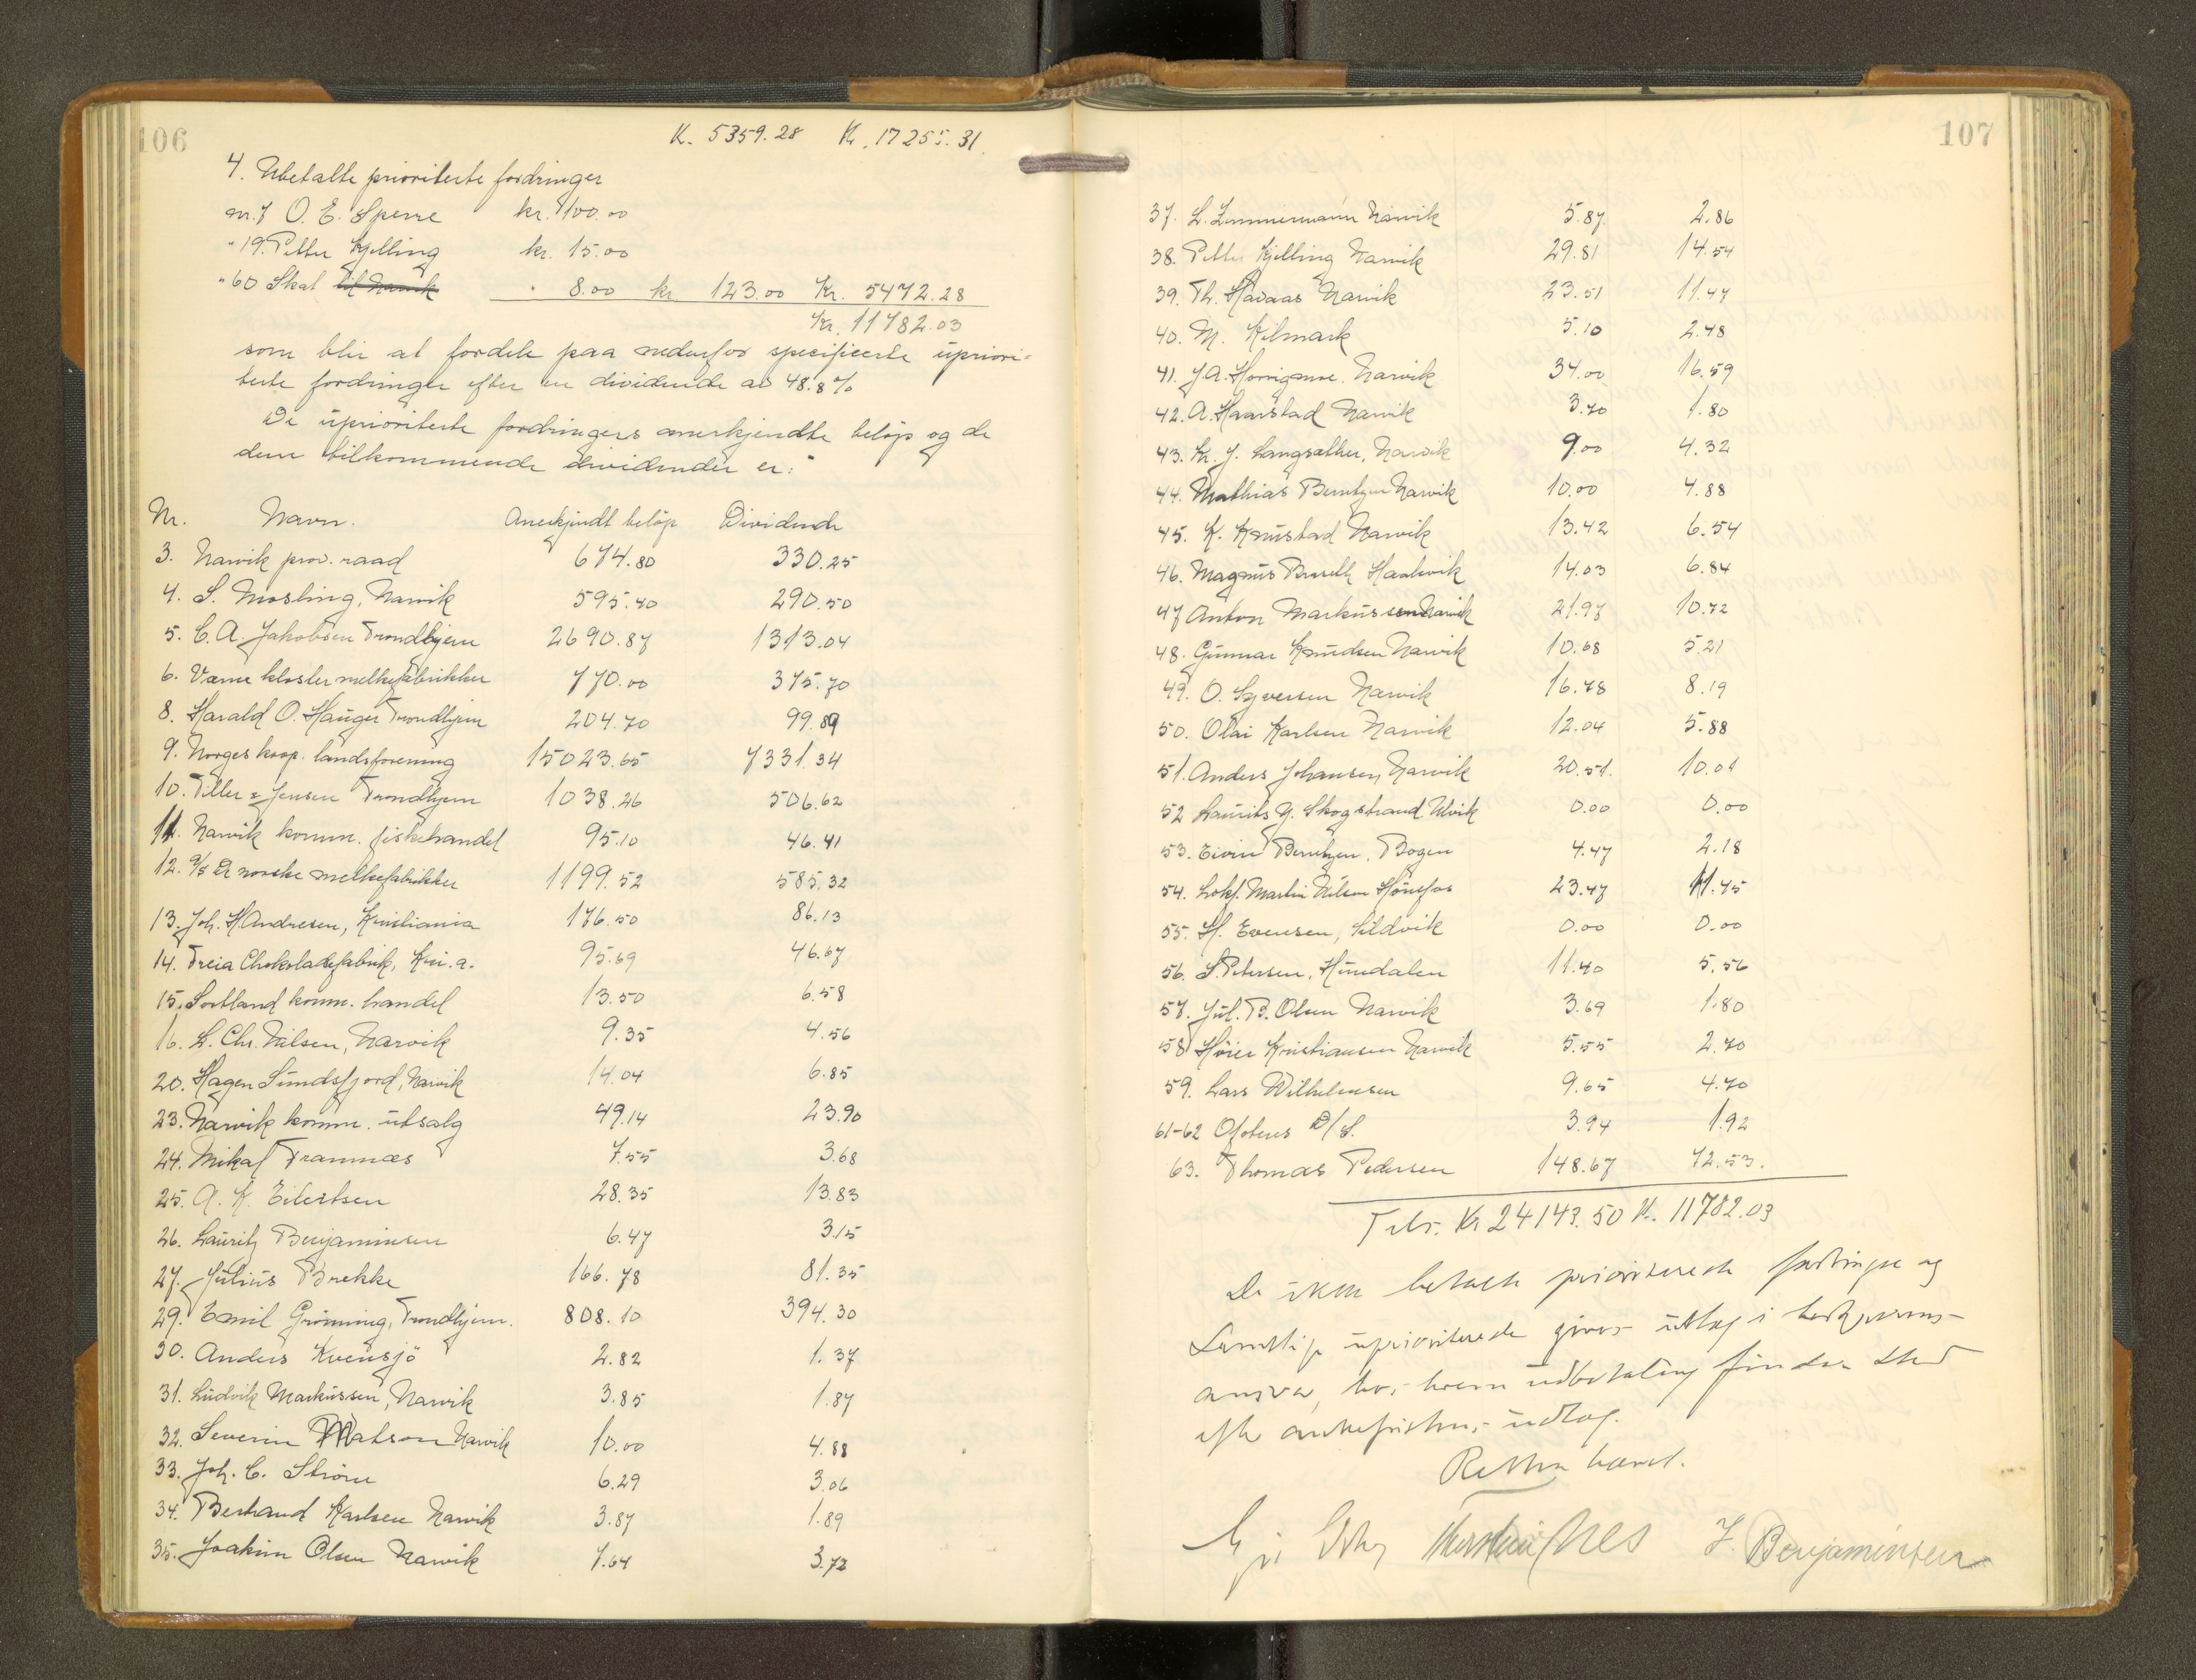 106
K. 5359.28 Kr. 17255.31.
4. Ubetalte prioriterte fordringer
nr. 7 O. E. Sperre kr. 100.00
" 19. Petter Kjelling kr. 15.00
" 60 Skat til Narvik " 8.00 kr. 123.00 Kr. 5472.28
Kr. 11782.03
som blir at fordele paa nedenfor specificerte upriori-
terte fordringer efter en dividende av 48.8 %
De uprioriterte fordringers anerkjendte beløp og de
dem tilkommende dividender er:
Nr. Navn. Anerkjendt beløp Dividende
3. Narvik prov. raad 674.80 330.25
4. S. Mosling, Narvik 595.40 290.50
5. C. A. Jakobsen Trondhjem 2690.87 1313.04
6. Værne kloster melkefabrikker 770.00 375.70
8. Harald O. Hauger Trondhjem 204.70 99.89
9. Norges koop. landsforening 15023.65 7331.34
10. Tiller & Jensen Trondhjem 1038.26 506.62
11. Narvik komm. fiskehandel 95.10 46.41
12. A/S De norske melkefabrikker 1199.52 585.32
13. Joh. H. Andresen, Kristiania 176.50 86.13
14. Freia Chokoladefabrik, Kr.a. 95.69 46.67
15. Sortland komm. handel 13.50 6.58
16. L. Chr. Nilsen, Narvik 9.35 4.56
20. Hagen Sundsfjord, Narvik 14.04 6.85
23. Narvik komm. utsalg 49.14 23.90
24. Mikal Trannæs 7.55 3.68
25. A. K. Eilertsen 28.35 13.83
26. Lauritz Benjaminsen 6.47 3.15
27. Julius Brekke 166.78 81.35
29. Emil Grønning, Trondhjem. 808.10 394.30
30. Anders Kvensjö 2.82 1.37
31. Ludvik Markussen, Narvik 3.85 1.87
32. Severin Matson Narvik 10.00 4.88
33. Joh. C. Strøm 6.29 3.06
34. Bertrand Karlsen Narvik 3.87 1.89
35. Joakim Olsen Narvik 7.64 3.72
107
37. L. Zimmermann Narvik 5.87 2.86
38. Petter Kjelling Narvik 29.81 14.54
39. Th. Havaas Narvik 23.51 11.47
40. M. Kilmark 5.10 2.48
41. J. A. Horrigmoe. Narvik 34.00 16.59
42. A. Haarstad Narvik 3.70 1.80
43. Kr. J. Langsæther, Narvik 9.00 4.32
44. Mathias Berntzen Narvik 10.00 4.88
45. K. Knustad Narvik 13.42 6.54
46. Magnus 14.03 6.84
47 Anton Markussen Narvik 21.97 10.72
48. Gunnar Knudsen Narvik 10.68 5.21
49. O. Syversen Narvik 16.78 8.19
50. Olai Karlsen Narvik 12.04 5.88
51. Anders Johansen, Narvik 20.51. 10.01
52 Laurits G. Skogstrand Ulvik 0.00 0.00
53. Eivin Berntzen, Bogen 4.47 2.18
54. Lokf. Martin Nilsen Hønefos 23.47 11.45
55. H. Evensen, Sildvik 0.00 0.00
56. S. Petersen, Hundalen 11.40 5.56
57. Jul. B. Olsen Narvik 3.69 1.80
58 Høier Kristiansen Narvik 5.55 2.70
59. Lars Wilhelmsen 9.65 4.70
61-62 Ofotens D/S. 3.94 1.92
63. Thomas Pedersen 148.67 72.53.
Tils. Kr 24143.50 Kr. 11782.03
De ikke betalte prioriterede fordringer og
samtlige uprioriterede gives utlæg i bestyrerens
ansvar, hos hvem udbetaling finder sted
efter ankefristens udløp.
Retten hævet.
Thorstein Nes J. Benjaminsen